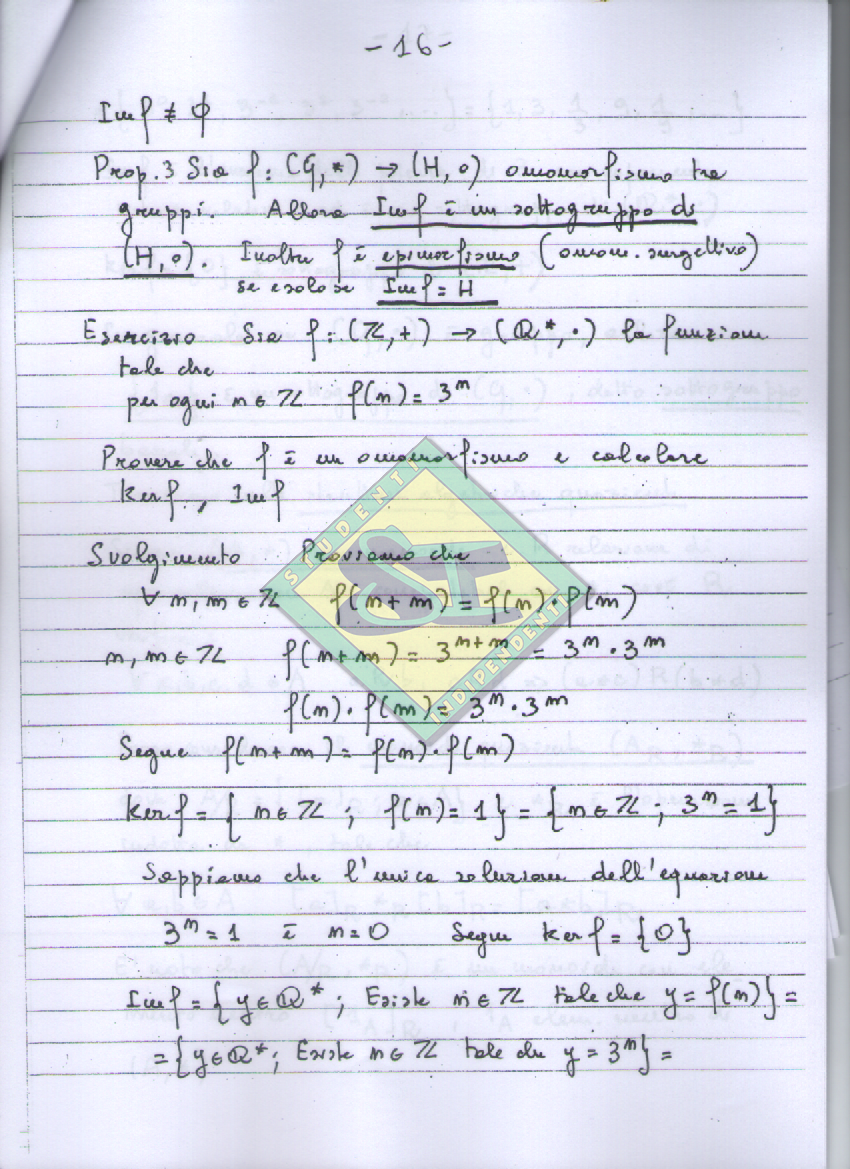 -16-
Im f ≠ ∅
Prop. 3 Sia f: (G,*) → (H,∘) omomorfismo tra
gruppi. Allora Im f è un sottogruppo di
(H,∘). Inoltre f è epimorfismo (omom. surgettivo)
se e solo se Im f = H
Esercizio Sia f: (ℤ,+) → (ℚ*,·) la funzione
tale che
per ogni n ∈ ℤ f(n) = 3ⁿ
Provare che f è un omomorfismo e calcolare
Ker f, Im f
Svolgimento Proviamo che
∀ n, m ∈ ℤ f(n+m) = f(n)·f(m)
n, m ∈ ℤ f(n+m) = 3ⁿ⁺ᵐ = 3ⁿ · 3ᵐ
f(n) · f(m) = 3ⁿ · 3ᵐ
Segue f(n+m) = f(n) · f(m)
Ker f = { n ∈ ℤ ; f(n) = 1 } = { n ∈ ℤ ; 3ⁿ = 1 }
Sappiamo che l'unica soluzione dell'equazione
3ⁿ = 1 è n = 0 Segue Ker f = {0}
Im f = { y ∈ ℚ* ; Esiste n ∈ ℤ tale che y = f(n) } =
= { y ∈ ℚ* ; Esiste n ∈ ℤ tale che y = 3ⁿ } =
STUDENTI
SI
INDIPENDENTI